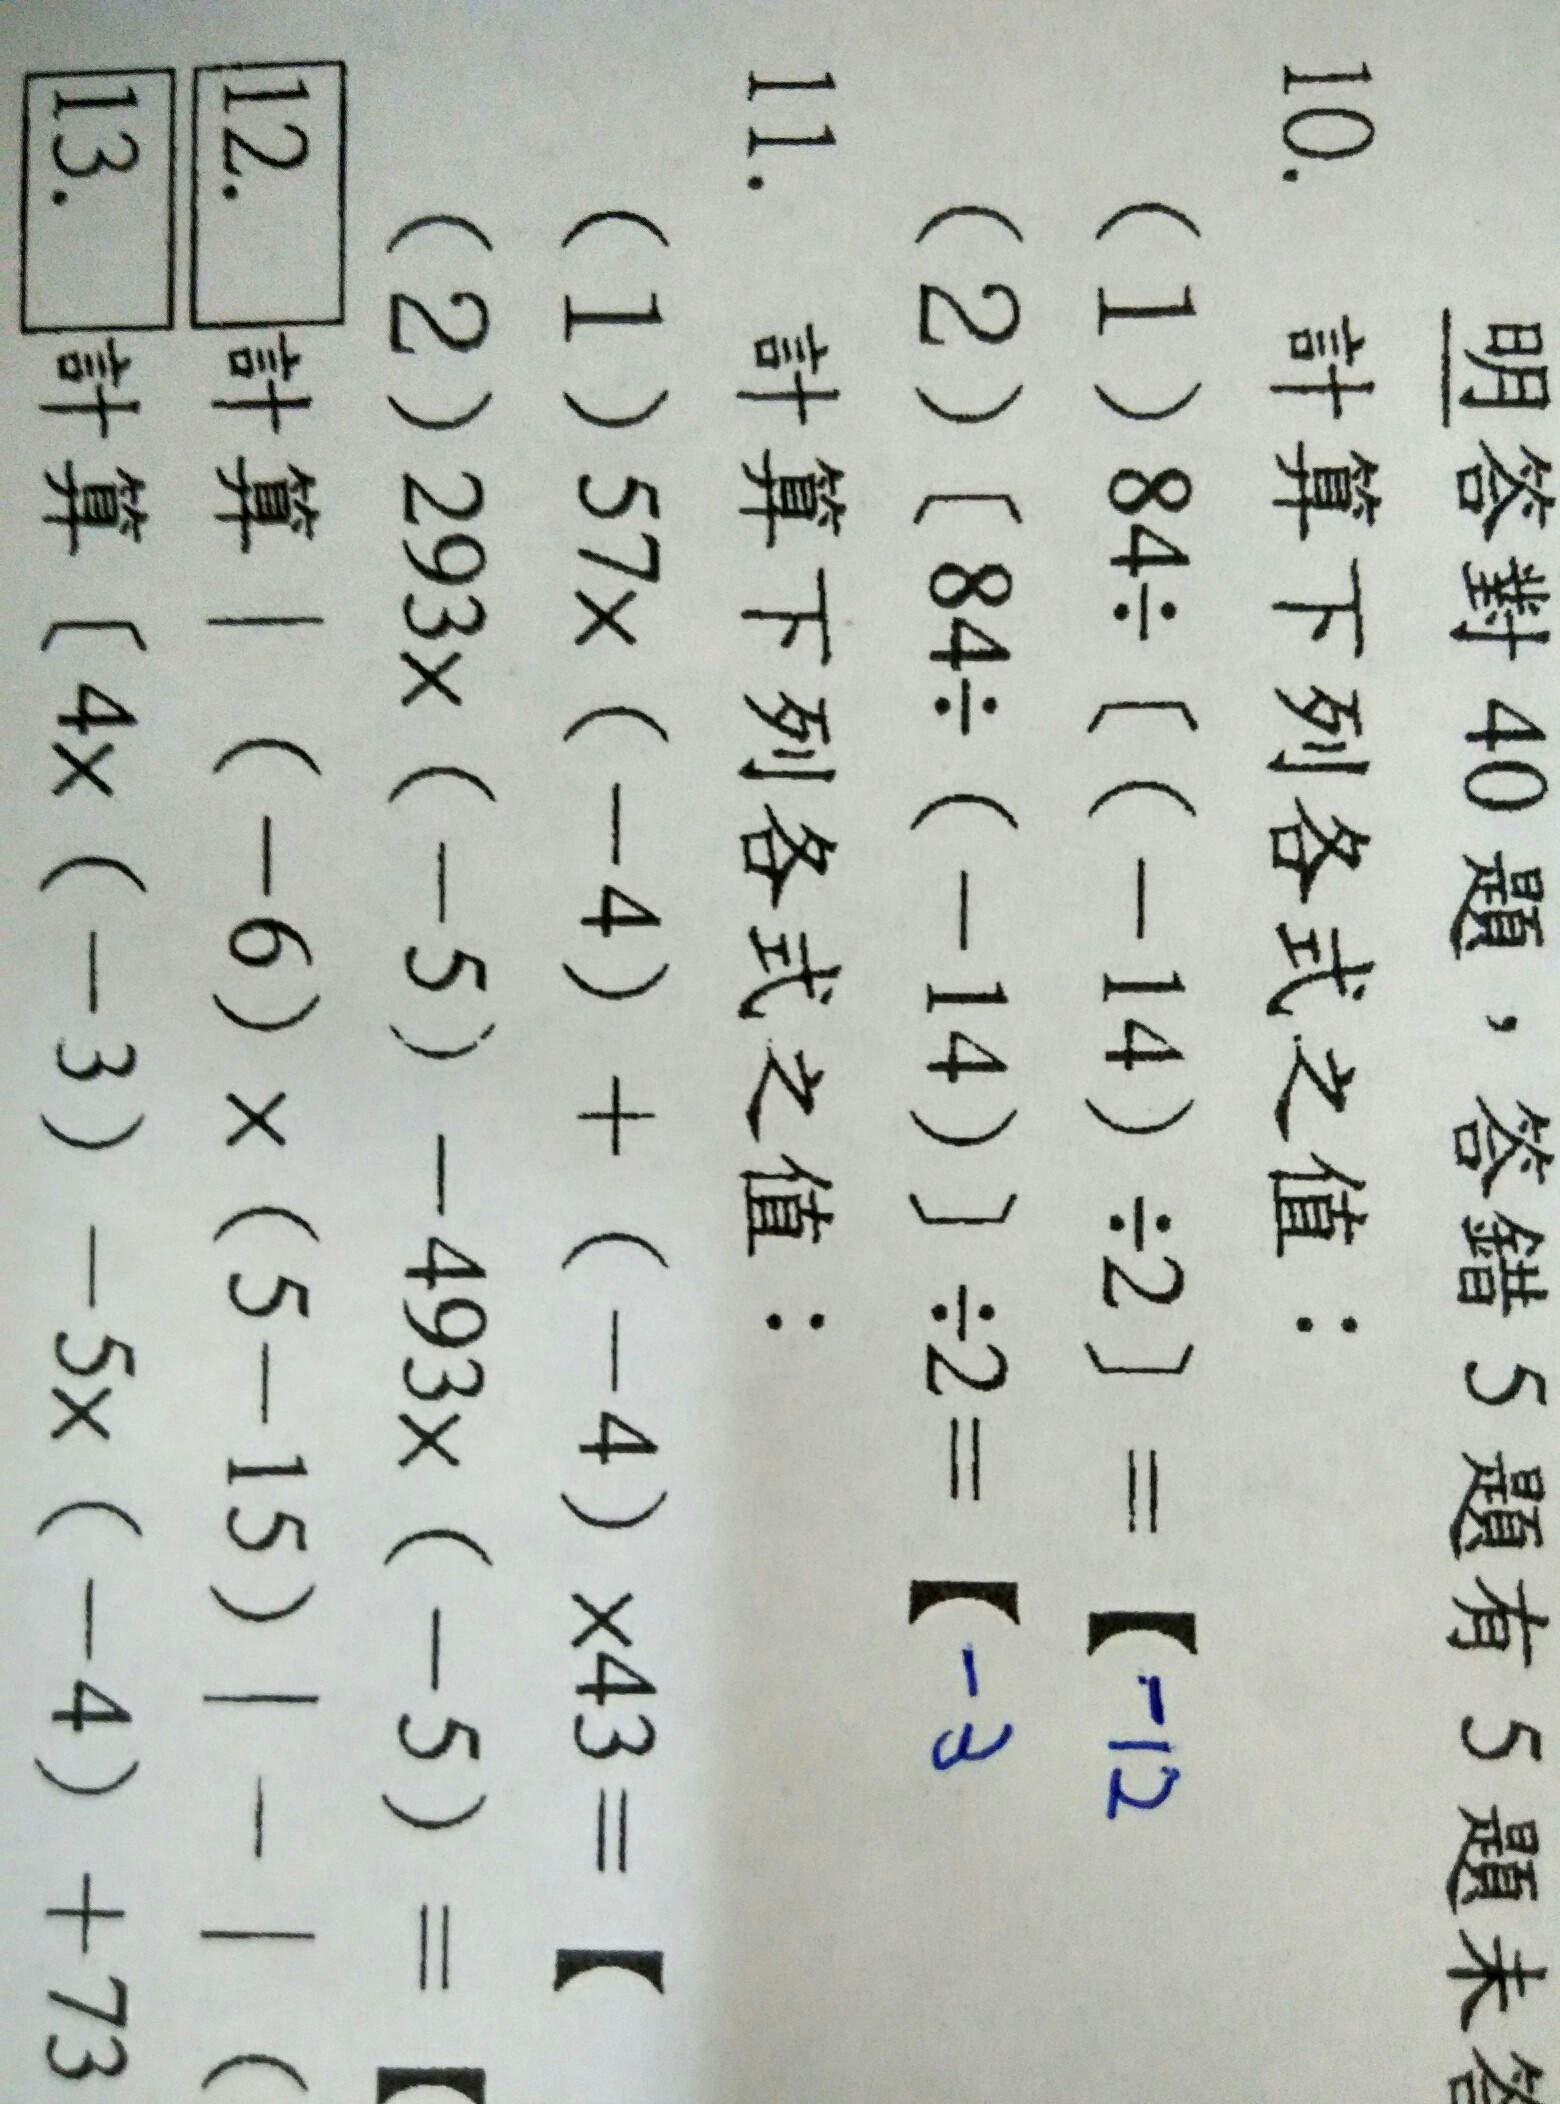 明答對 40 題，答錯 5 題有 5 題未答
10. 計算下列各式之值：
(1) 84÷〔(－14)÷2〕＝【-12
(2)〔84÷(－14)〕÷2＝【-3
11. 計算下列各式之值：
(1) 57×(－4)＋(－4)×43＝【
(2) 293×(－5)－493×(－5)＝【
12. 計算｜(－6)×(5－15)｜－｜(
13. 計算〔4×(－3)－5×(－4)＋73